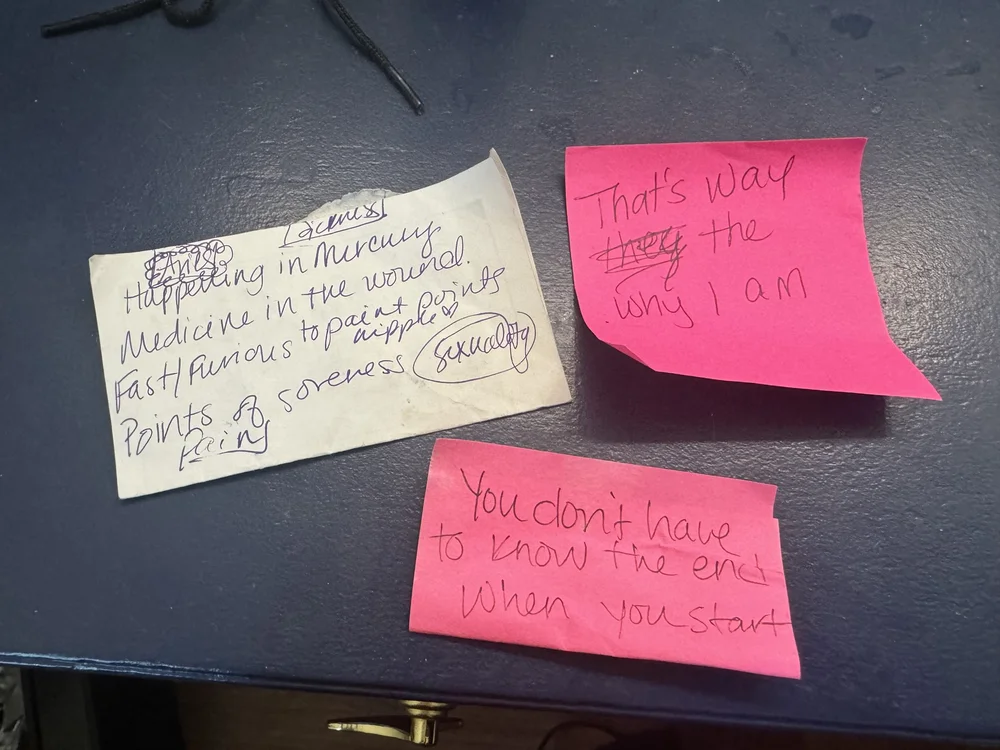 [Sickness]
Happening in Mercury
Medicine in the wound.
Fast/Furious to paint points
nipple
Points of soreness sexuality
Pain
That's way
they the
why I am
You don't have
to know the end
When you start